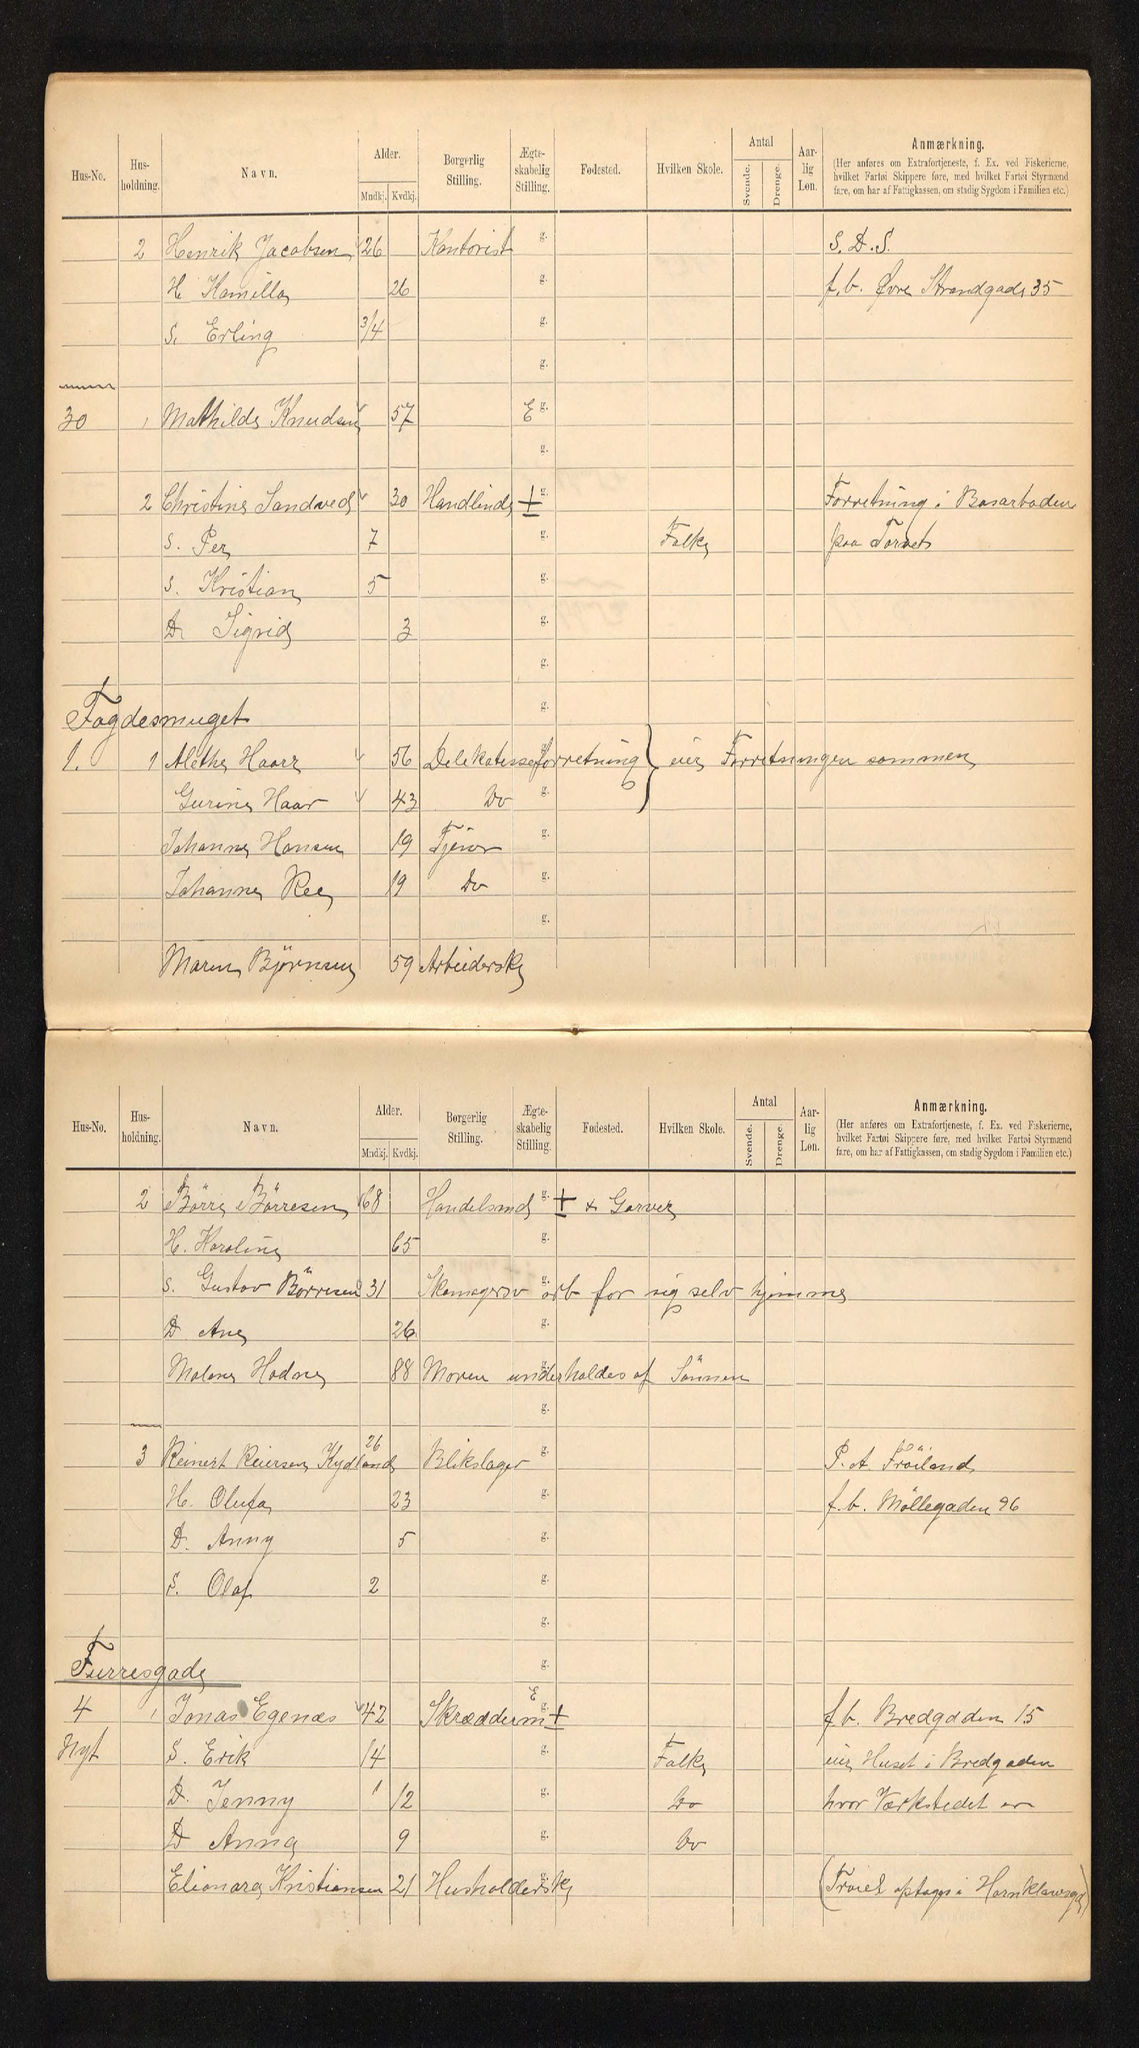 Hus-No. Hus-holdning. Navn. Alder. Mndkj. Kvdkj. Borgerlig Stilling. Ægte-skabelig Stilling. Fødested. Hvilken Skole. Antal Svende. Drenge. Aar-lig Løn. Anmærkning.
(Her anføres om Extrafortjeneste, f. Ex. ved Fiskerierne, hvilket Fartøi Skippere føre, med hvilket Fartøi Styrmænd fare, om har af Fattigkassen, om stadig Sygdom i Familien etc.)
2 Henrik Jacobsen 26 Kontorist g. S. D. S.
H Kamilla 26 g. f.b. Øvre Strandgade 35
S. Erling 3/4 g.
g.
30 1 Mathilde Knudsen 57 E g.
g.
2 Christine Sandved 30 Handlende ± g. Forretning i Basarboden
S. Per 7 g. Folke paa Torvet
S. Kristian 5 g.
D Sigrid 3 g.
g.
Fogdesmuget g.
1. 1 Alethe Haarr 56 Delikatesseforretning eier Forretningen sammen
Gurine Haar 43 Do g.
Johanne Hansen 19 Tjener g.
Johanne Ree 19 Do g.
g.
Maren Bjørnsen 59 Arbeiderske
Hus-No. Hus-holdning. Navn. Alder. Mndkj. Kvdkj. Borgerlig Stilling. Ægte-skabelig Stilling. Fødested. Hvilken Skole. Antal Svende. Drenge. Aar-lig Løn. Anmærkning.
(Her anføres om Extrafortjeneste, f. Ex. ved Fiskerierne, hvilket Fartøi Skippere føre, med hvilket Fartøi Styrmænd fare, om har af Fattigkassen, om stadig Sygdom i Familien etc.)
2 Børre Børresen 68 Handelsmd g. ± + Garver
H. Karoline 65 g.
S. Gustav Børresen 31 Skomagersv g. arb for sig selv hjemme
D Ane 26 g.
Malene Hodne 88 Moren underholdes af Sønnen
g.
3 Reinert Reiersen Kydland 26 Blikslager g. P. A. Frøiland
H. Olufa 23 g. f.b. Møllegaden 96
D. Anny 5 g.
S. Olaf 2 g.
g.
Furresgade g.
4 1 Jonas Egenæs 42 Skrædderm ± E g. f.b. Bredgaden 15
Nyt S. Erik 14 g. Folke eier Huset i Bredgaden
D. Jenny 12 g. Do hvor Værkstedet er
D Anna 9 g. Do
Elionora Kristiansen 21 Husholderske g. (Troiel optages i Harnklawsgd)